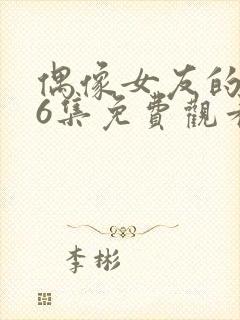 偶像女友的
6集免費觀看
李彬